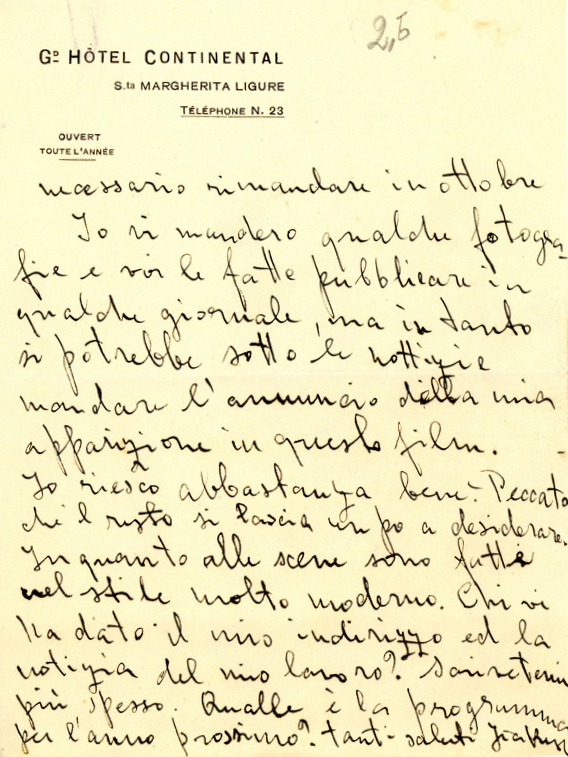 2,5
Gᴰ HÔTEL CONTINENTAL
S.ta MARGHERITA LIGURE
TÉLÉPHONE N. 23
OUVERT
TOUTE L'ANNÉE
necessario rimandare in ottobre
Io vi mandero qualche fotogra-
fie e voi le fatte pubblicare in
qualche giornale, ma in tanto
si potrebbe sotto le nottizie
mandare l'annuncio della mia
apparizione in questo film.
Io riesco abbastanza bene. Peccato
che l resto si lascia un po a desiderare.
In quanto alle scene sono fatte
nel stile molto moderno. Chi vi
ha dato il mio indirizzo ed la
notizia del mio lavoro?
più spesso. Qualle è la programma
per l'anno prossimo? tanti saluti